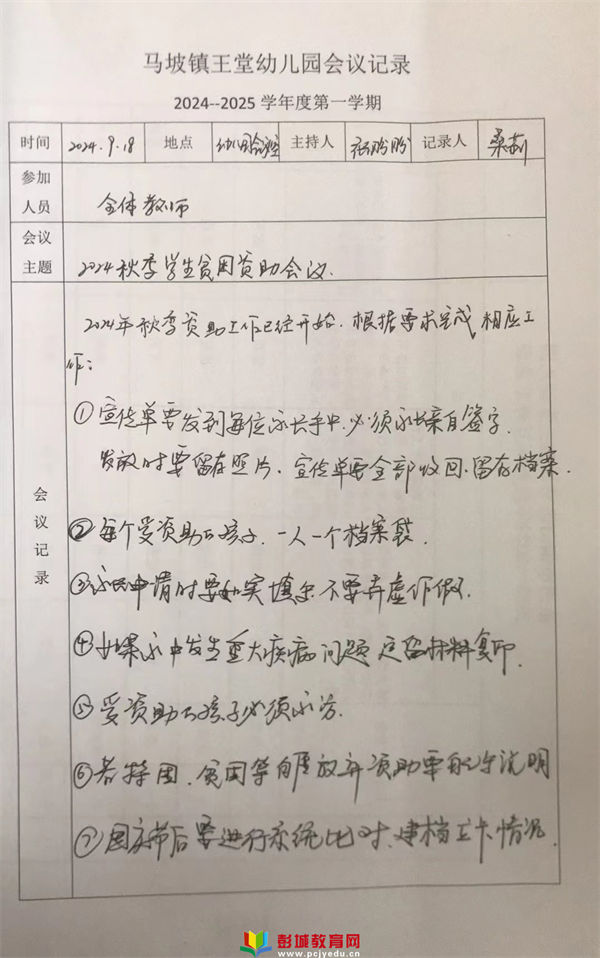 马坡镇王堂幼儿园会议记录
2024--2025 学年度第一学期
时间 2024.9.18 地点 幼儿园会议室 主持人 记录人
参加人员 全体教师
会议主题 2024秋季学生贫困资助会议.
会议记录
2024年秋季资助工作已经开始.根据要求完成相应工
作:
①宣传单要发到每位家长手中,必须家长亲自签字.
发放时要留存照片、宣传单要全部收回、留存档案.
②每个受资助的孩子.一人一个档案袋.
③家长申请时要如实填写 不要弄虚作假.
④如果家中发生重大疾病问题 留材料复印.
⑤受资助的孩子必须家访.
⑥若特困、贫困学自愿放弃资助要 说明
⑦国庆节后要进行系统比对、建档立卡情况.
彭城教育网
www.pcjyedu.cn